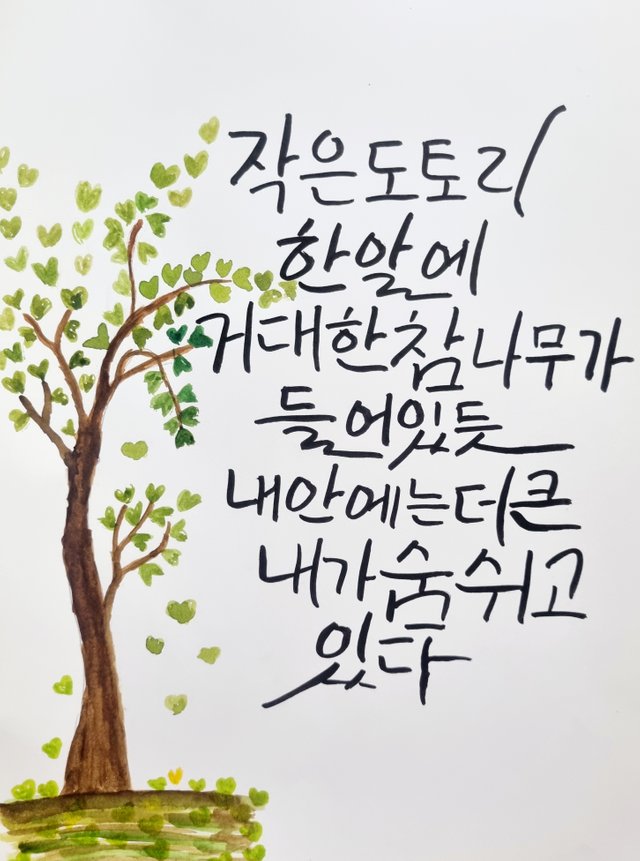 작은도토리
한알에
거대한참나무가
들어있듯
내안에는더큰
내가숨쉬고
있다